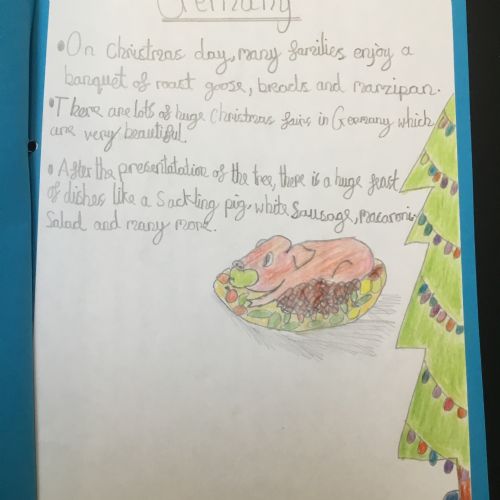 Germany
•On Christmas day, many families enjoy a
banquet of roast goose, breads and marzipan.
•There are lots of huge Christmas fairs in Germany which
are very beautiful.
•After the presentatation of the tree, there is a huge feast
of dishes like a Sackling pig, white Sausage, macaroni
Salad and many more.